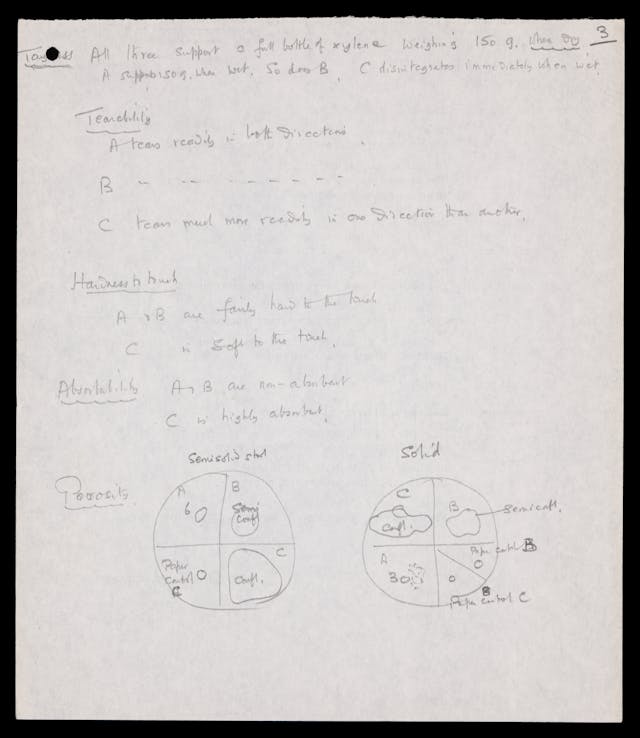 3
Toughness All three support a full bottle of xylene weighing 150 g. when dry
A supports 150 g. when wet. So does B. C disintegrates immediately when wet.
Tearability
A tears readily in both directions.
B " - - - - - -
C tears much more readily in one direction than another.
Hardness to touch
A & B are fairly hard to the touch
C is soft to the touch.
Absorbability A & B are non-absorbent
C is highly absorbent.
Porosity
Semisolid stool
A
6
B
Semi
confl
Paper
control
C
C
Confl.
Solid
C
Confl.
B
Semiconfl.
A
30
Paper control B
B
Paper control C